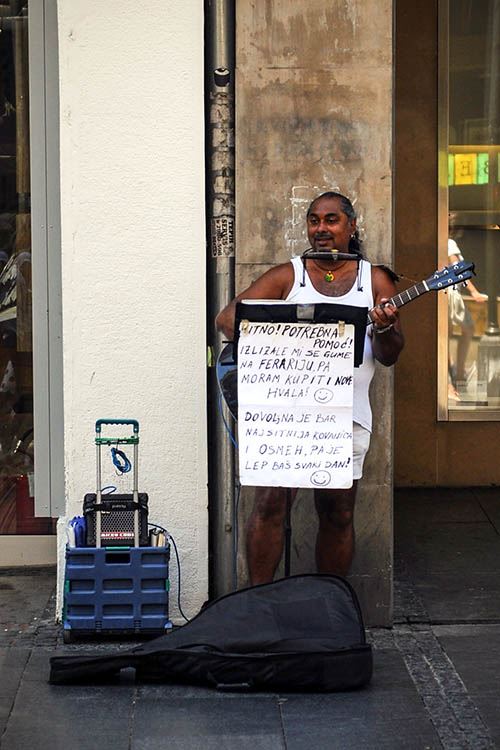 HITNO! POTREBNA
POMOĆ!
IZLIZALE MI SE GUME
NA FERARIJU, PA
MORAM KUPITI NOVE
HVALA!
DOVOLJNA JE BAR
NAJSITNIJA KOVANICA
I OSMEH, PA JE
LEP BAŠ SVAKI DAN!